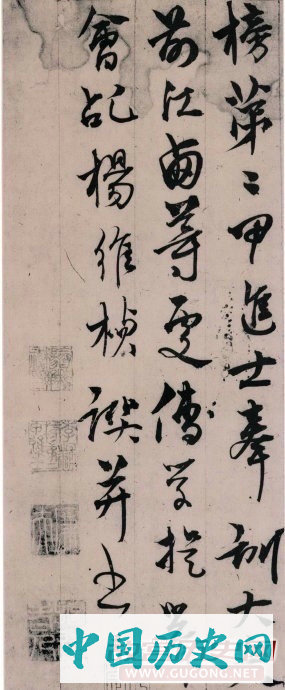 榜第二甲進士奉訓大
前江西等處儒學提舉
會稽楊維楨譔并書
中国历史网
WWW.GUGONG.NET